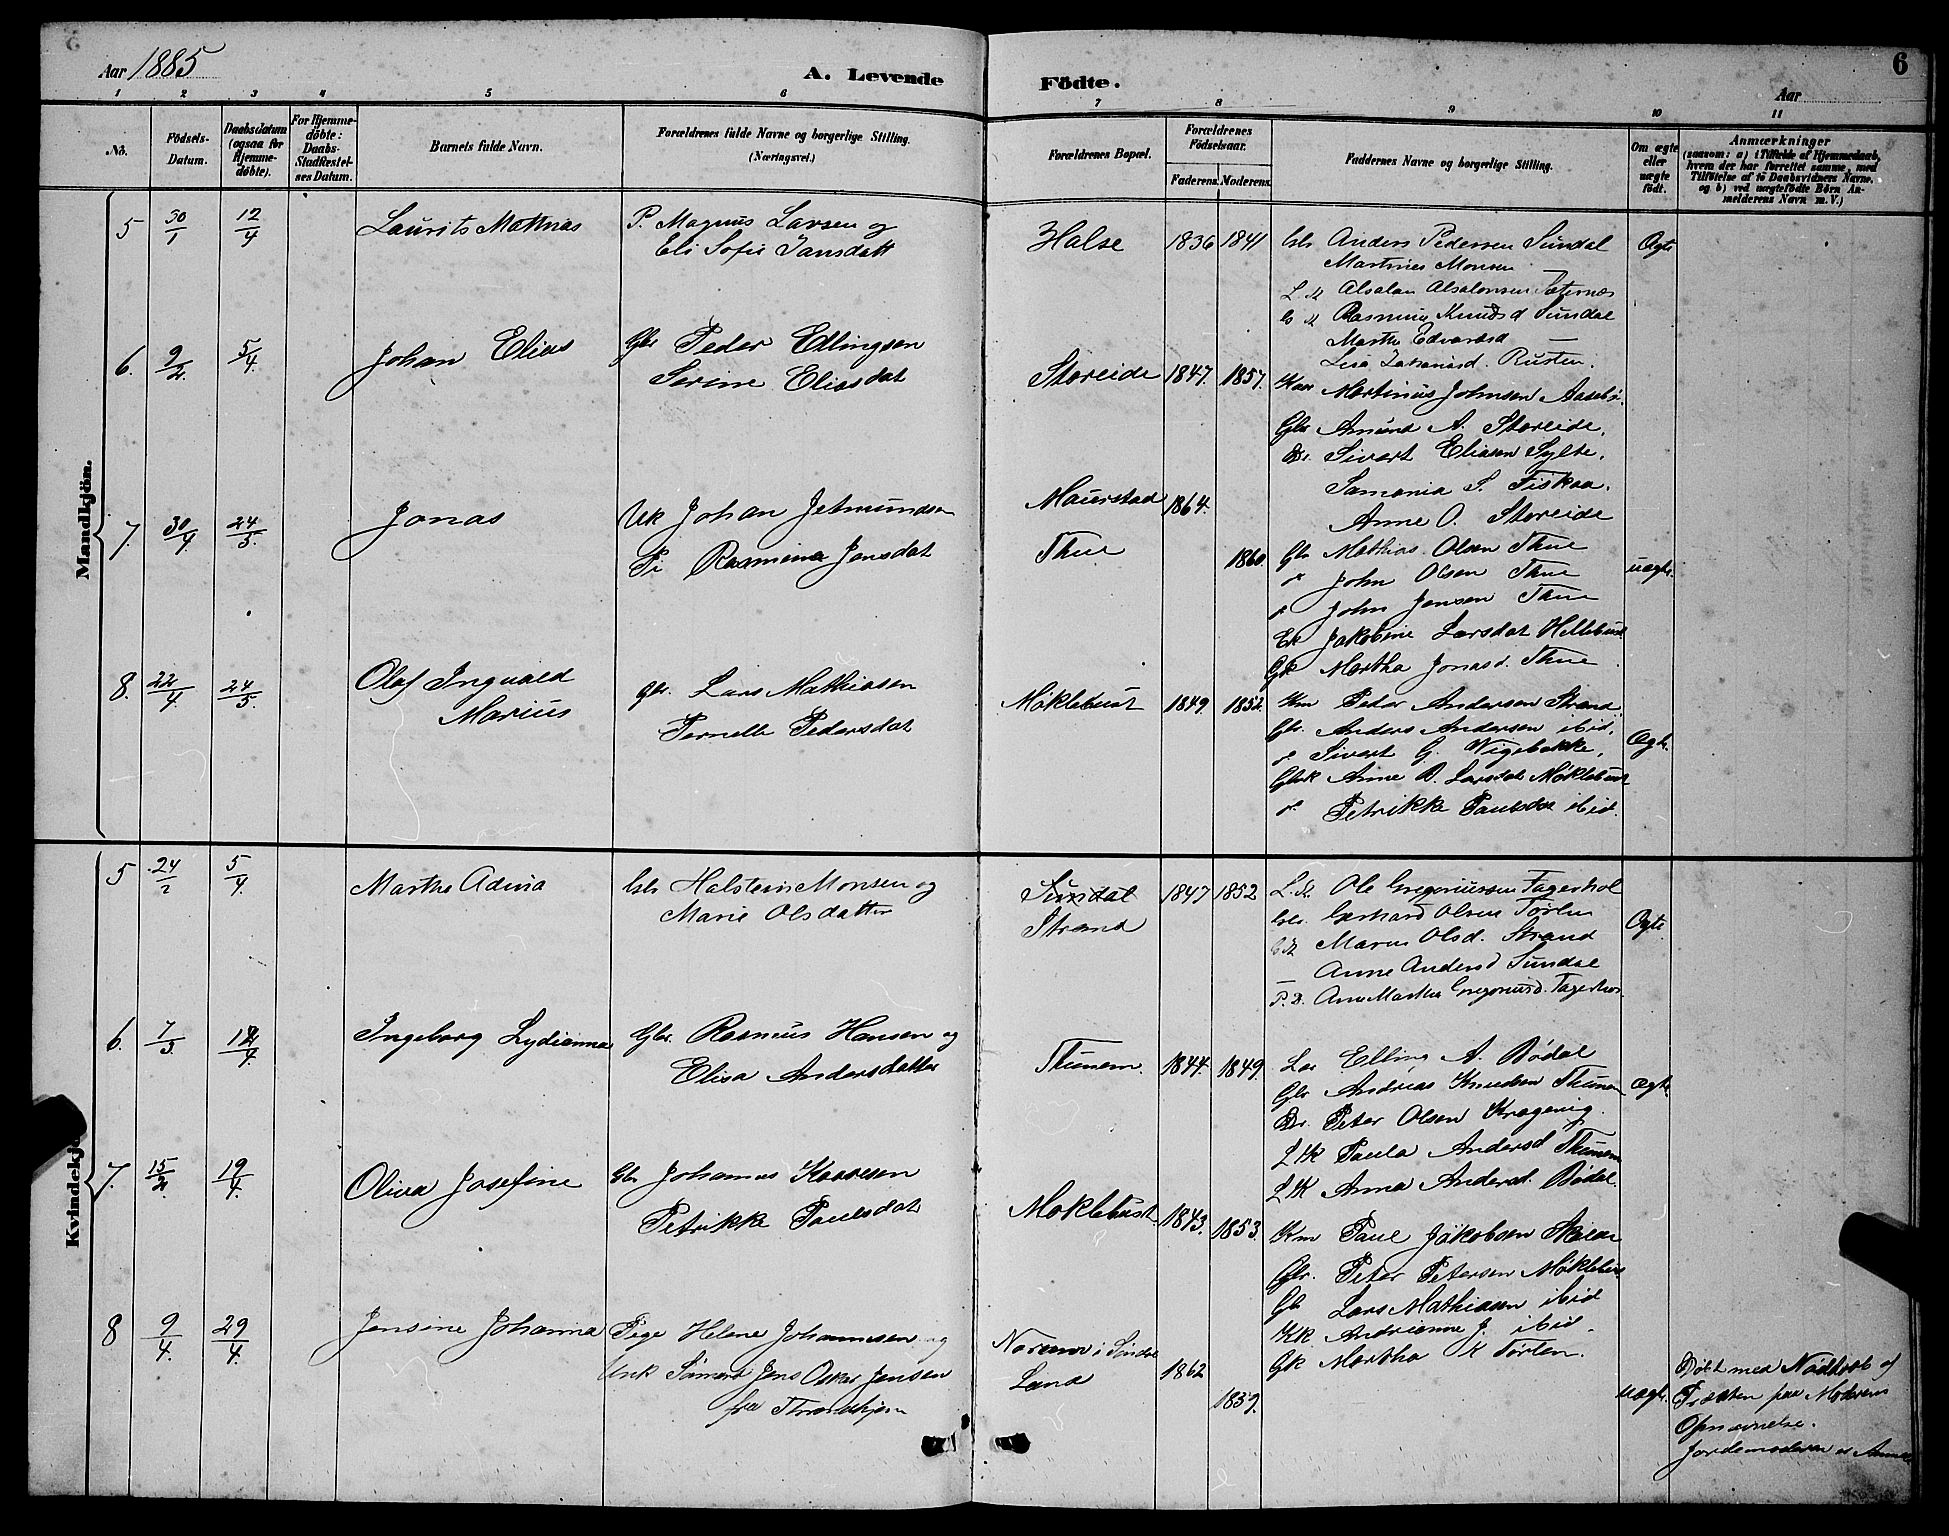 6
Aar 1885
A. Levende Födte.
Aar
1 2 3 4 5 6 7 8 9 10 11
No.
Födsels-Datum.
Daabsdatum (ogsaa for Hjemme-döbte).
For Hjemme-döbte: Daabs-Stadfæstel-ses Datum.
Barnets fulde Navn.
Forældrenes fulde Navne og borgerlige Stilling. (Næringsvei.)
Forældrenes Bopæl.
Forældrenes Födselsaar.
Faderens. Moderens.
Faddernes Navne og borgerlige Stilling.
Om ægte eller uægte födt.
Anmærkninger
(saasom: a) i Tilfælde af Hjemmedaab, hvem der har forrettet samme, med Tilföielse af to Daabsvidners Navne, og b) ved uægtefödte Börn An-melderens Navn m.V.)
Mandkjön.
5 30/1 12/4 Laurits Mathias P. Magnus Larsen og
Eli Sofie Jansdatt
Halse 1836 1841
Anders Pedersen Sundal
Martines Monsen
Absalon Absalonsen Sæternæs
Rasmus Knudsd Sundal
Marthe Edvardsd
Rusten.
Ægte
6. 9/2. 5/4 Johan Elias Gbr Peder Ellingsen
Serine Eliasdat
Storeide 1847. 1857.
Martinus Johnsen Aasebø.
Gbr Amund A. Storeide.
Sivert Eliasen Sylte.
Samania S. Fiskaa.
Anne O. Storeide
7. 30/4 24/5. Jonas Uk Johan Jetmundsen
Pi Rasmine Jonsdat
Maurstad 1864.
Thue 1860.
Gbr Mathias Olsen Thue
John Olsen Thue
John Jensen Thue
Ek Jakobine Larsdat Hellebust
Gk Martha Jonasd. Thue
uægte.
8. 22/4 24/5. Olaf Ingvald
Marius
gbr. Lars Mathiasen
Pernelle Pedersdat
Møklebust 1849. 1852.
Km Peder Andersen Strand.
Gbr. Anders Andersen ibid.
Sivert G. Vigebakke.
Gbk Anne B. Larsdat Møklebust
Petrikke Paulsdat ibid.
Ægte.
Kvindekjön
5 24/2 5/4. Marthe Adina Halstein Monsen og
Marie Olsdatter
Sundal
Strand
1847 1852
Ole Gregoriussen Fagerhol
Gerhard Olsen Førlen
Maren Olsd. Strand
Anne Andersd Sundal
P.D. Ane Marthe Gregoriusd. Fagerhol.
Ægte
6. 7/3. 12/4. Ingeborg Lydianna Gbr. Rasmus Hansen og
Elisa Andersdatter
Thunem. 1844. 1849.
Elling A. Bødal
Gbr Andrias Knudsen Thunem
Peter Olsen
LK Paula Andersd Thunem
LK Anna Andersd. Bødal.
Ægte.
7. 15/2 19/4. Oliva Josefine Gbr Johannes Kaaresen
Petrikke Paulsdat
Møklebust. 1843. 1853.
Km Paul Jakobsen
Gbr. Peter Petersen Møklebust
Gb Lars Mathiasen ibid
Kk Andrianne J. ibid.
Gk Martha K Førlen.
8 9/4. 29/4. Jensine Johanna Pige Helene Johannesen og
Unk Sømand Jens Oskar Jensen
fra Throndhjem
i Søndre
Land
1862
1859.
uægte.
Døbt med Nødtoft
paa Moderens
Opnævnelse.
Jordemoderen